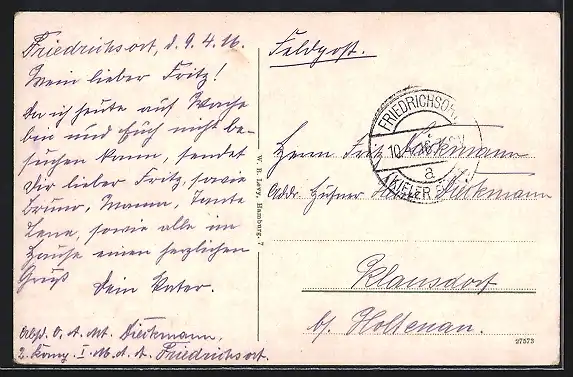 Friedrichsort, d. 9. 4. 16.
Mein lieber Fritz!
Da ich heute auf Wache
bin und Euch nicht be-
suchen kann, sendet
Dir lieber Fritz, sowie
Bruno, Mamm, Tante
Lene, sowie alle im
Hause einen herzlichen
Gruß
Dein Vater.
Absd. O. A. Mt. Dieckmann,
2. Komp. I. M. A. A. Friedrichsort.
W. B. Levy, Hamburg. 7
Feldpost.
FRIEDRICHSORT
10.4.16
a
(KIELER
Herrn Fritz Dieckmann
Adr. Hufner Dieckmann
Klausdorf
b/ Holtenau.
27573